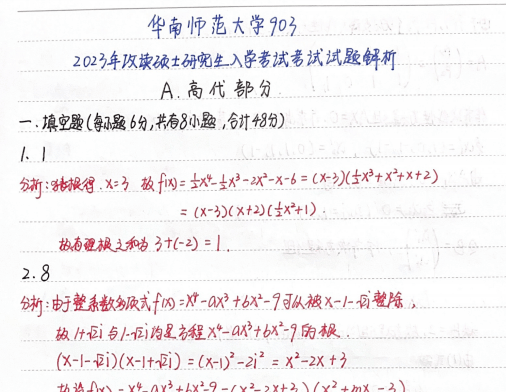 华南师范大学903
2023年攻读硕士研究生入学考试考试试题解析
A.高代部分
一.填空题(每小题6分,共有8小题,合计48分)
1. 1
分析: 得.x=3 故f(x)=½x⁴-½x³-2x²-x-6=(x-3)(½x³+x²+x+2)
=(x-3)(x+2)(½x²+1).
故有理根之和为 3+(-2)=1.
2. 8
分析:由于整系数多项式f(x)=x⁴-ax³+bx²-9可以被x-1-√2i整除,
故1+√2i与1-√2i均是方程x⁴-ax³+bx²-9的根.
(x-1-√2i)(x-1+√2i)=(x-1)²-2i²=x²-2x+3
f(x)=x⁴-ax³+bx²-9=(x²-2x+3)(x²+mx-3)